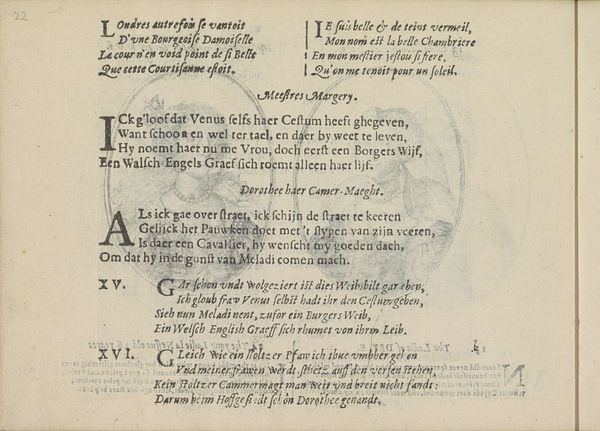 22
LOndres autresfois se vantoit
D'vne Bourgeoise Damoiselle
La cour n'en void point de si Belle
Que cette Courtisanne estoit.
IE suis belle & de teint vermeil,
Mon nom est la belle Chambriere
En mon mestier jestoü si fiere,
Qu'on me tenoit pour un soleil.
Meestres Margery.
ICk g'loof dat Venus selfs haer Cestum heeft ghegeven,
Want schoon en wel ter tael, en daer by weet te leven,
Hy noemt haer nu me Vrou, doch eerst een Borgers Wijf,
Een Walsch-Engels Graef sich roemt alleen haer lijf.
Dorothee haer Camer-Maeght.
ALs ick gae over straet, ick schijn de straet te keeren
Gelijck het Pauwken doet met 't slypen van zijn veeren,
Is daer een Cavallier, hy wenscht my goeden dach,
Om dat hy in de gunst van Meladi comen mach.
XV. GAr schon vndt wolgeziert ist dies Weibsbilt gar eben,
Ich gloub fraw Venus selbst hadt ihr den Cestum geben,
Sieh nun Meladi nent, zufor ein Burgers Weib,
Ein Welsch English Graeff sich rhumet von ihrm Leib.
XVI. GLeich wie ein stoltzer Pfaw ich thue vmbher gehen
Vnd meiner frawen werdt stehtz auff den versen stehen,
Kein stoltzer Cammermagt man weit vnd breit nicht fandt:
Darum beim Hoffgesindt schon Dorothee genandt.